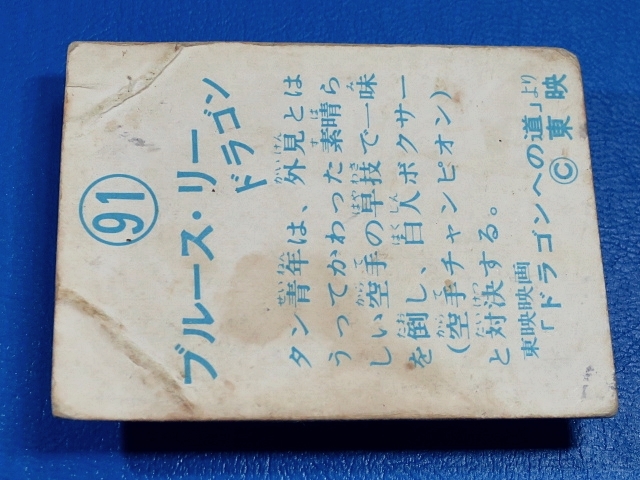 91
ブルース・リー
ドラゴン
タン青年は、外見とは
うってかわった素晴ら
しい空手の早技で一味
を倒し、白人ボクサー
(空手チャンピオン)
と対決する。
東映映画
「ドラゴンへの道」より
©東映